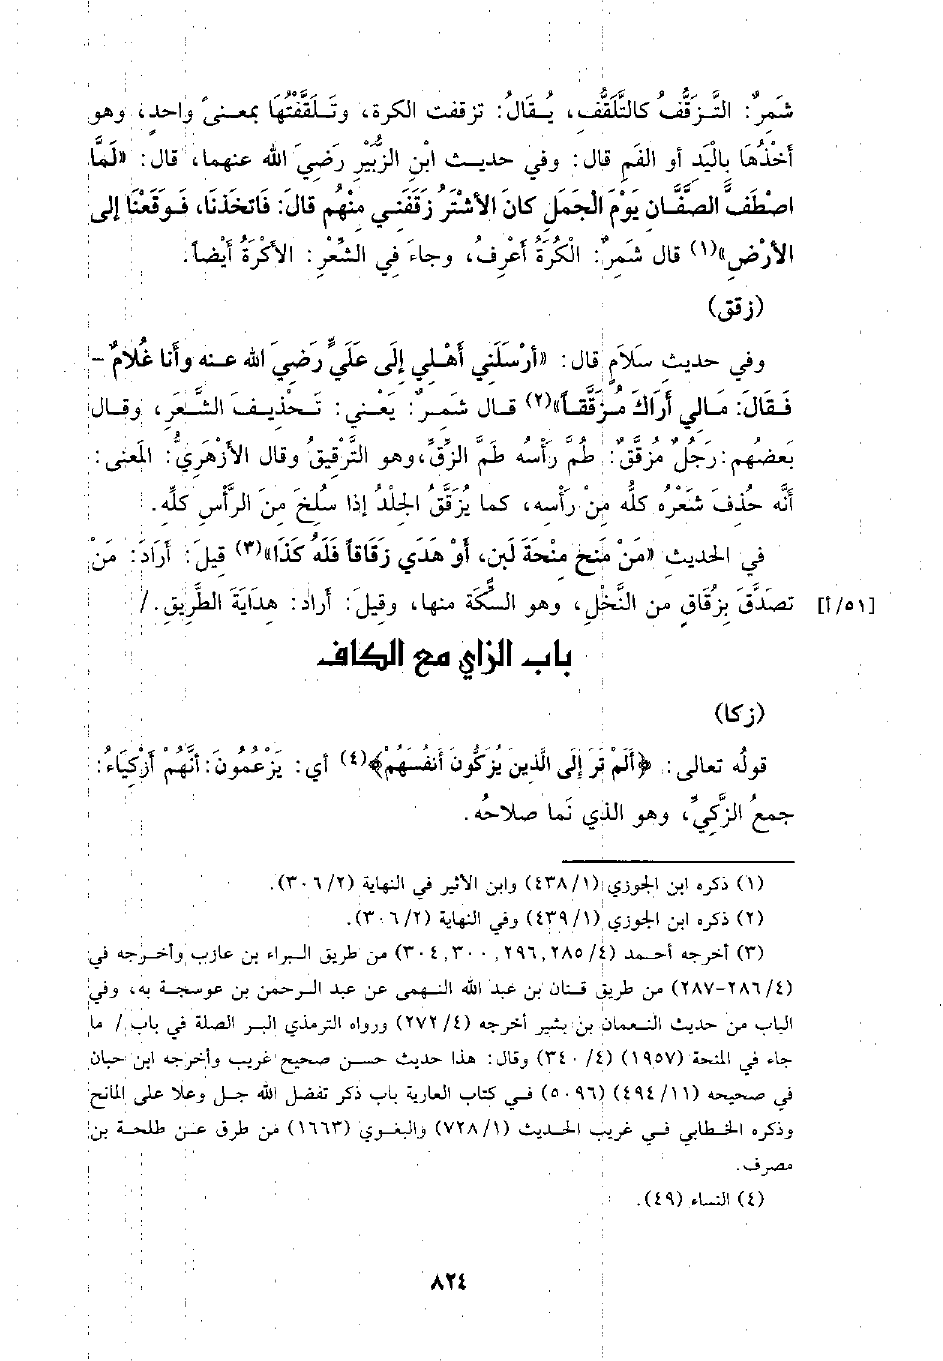 شَمرٌ: التَّزَقُّفُ كالتَّلَقُّف، يُقَالُ: تزقفت الكرة، وتَلَقَّفْتُهَا بمعنىً واحدٍ، وهو
أخْذُهَا بِالْيَدِ أو الفَمِ قال: وفي حديث ابْنِ الزُّبَيْرِ رَضِيَ الله عنهما، قال: «لَمَّا
اصْطَفَّ الصفَّان يَوْمَ الْجَمَلِ كانَ الأشْتَرُ زَقَفَنِي مِنْهُم قالَ: فَاتخَذنَا، فَوقَعْنَا إلى
الأرْضِ»(١) قال شَمرٌ: الْكُرَةُ أعْرفُ، وجاءَ فِي الشِّعْرِ: الأكْرَةُ أيْضاً.
(زقق)
وفي حديث سَلاَمٍ قال: «أرْسَلَنِي أهْلِي إلَى عَلَيٍّ رَضِيَ الله عنه وأنا غُلامٌ -
فَقَالَ: مَالِي أَرَاكَ مُزَقَّقاً»(٢) قال شَمرٌ: يَعْني: تَحْذيفَ الشَّعَرِ، وقال
بَعضُهم: رَجُلٌ مُزقَّقٌ: طُمَّ رَأسُه طَمَّ الزِّقِّ، وهو التَّزْقيقُ وقال الأزْهَرِيُّ: المعنى:
أنَّه حُذفَ شَعْرُه كلُّه مِنْ رَأسه، كما يُزَقَّقُ الجِلْدُ إذا سُلخَ مِنَ الرَّأسِ كلِّه.
في الحديث «مَنْ مَنحَ مِنْحَةَ لَبنٍ، أوْ هَدَي زَقَاقاً فَلَهُ كَذَا»(٣) قيلَ: أرَادَ: مَنْ
تصَدَّقَ بِزُقَاقٍ من النَّخْلِ، وهو السِّكَّة منها، وقيلَ: أراد: هدَايَةَ الطَّريقِ./ [٥١/أ]
باب الزاي مع الكاف
(زكا)
قولُه تعالى: ﴿ألَمْ تَرَ إلَى الَّذينَ يُزكُّونَ أنفُسَهُمْ﴾(٤) أي: يَزْعُمُونَ: أنَّهُمْ أزْكِيَاءُ:
جمعُ الزَّكِيِّ، وهو الذي نَما صلاحُه.
(١) ذكره ابن الجوزي (٤٣٨/١) وابن الأثير في النهاية (٣٠٦/٢).
(٢) ذكره ابن الجوزي (٤٣٩/١) وفي النهاية (٣٠٦/٢).
(٣) أخرجه أحمد (٢٨٥/٤, ٢٩٦, ٣٠٠, ٣٠٤) من طريق البراء بن عازب وأخرجه في
(٢٨٦/٤-٢٨٧) من طريق قنان بن عبد الله النهمى عن عبد الرحمن بن عوسجة به، وفي
الباب من حديث النعمان بن بشير أخرجه (٢٧٢/٤) ورواه الترمذي البر الصلة في باب / ما
جاء في المنحة (١٩٥٧) (٣٤٠/٤) وقال: هذا حديث حسن صحيح غريب وأخرجه ابن حبان
في صحيحه (٤٩٤/١١) (٥٠٩٦) في كتاب العارية باب ذكر تفضل الله جل وعلا على المانح
وذكره الخطابي في غريب الحديث (٧٢٨/١) والبغوي (١٦٦٣) من طرق عن طلحة بن
مصرف.
(٤) النساء (٤٩).
٨٢٤